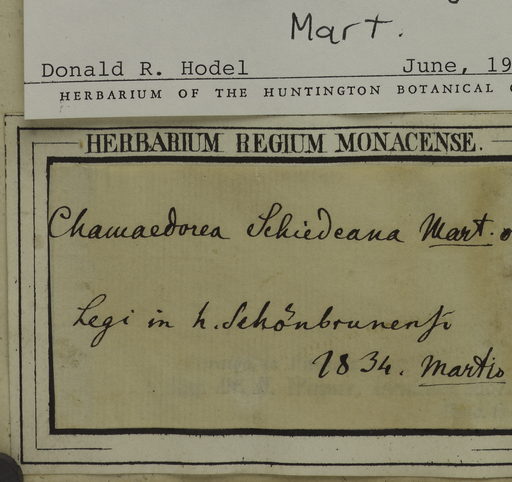 Mart.
Donald R. Hodel June, 19
HERBARIUM OF THE HUNTINGTON BOTANICAL
HERBARIUM REGIUM MONACENSE.
Chamaedorea Schiedeana Mart.
Legi in h. Schönbrunensi
1834. Martio